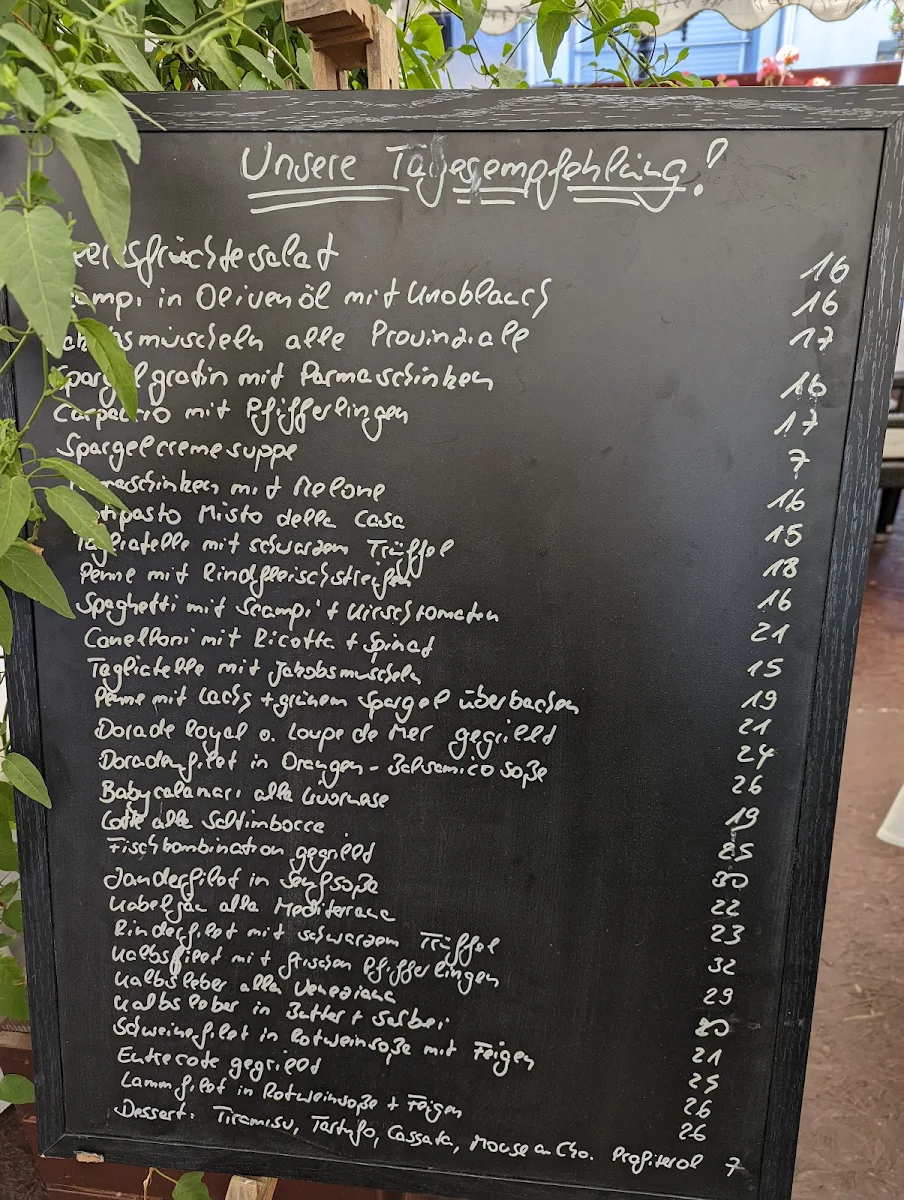 Unsere Tagesempfehlung!
eeresfrüchtesalat 16
campi in Olivenöl mit Knoblauch 16
akobsmuscheln alle Provinziale 17
Spargelgratin mit Parmaschinken 16
Carpaccio mit Pfifferlingen 17
Spargelcremesuppe 7
maschinken mit Melone 16
tipasto Misto della Casa 15
Tagliatelle mit schwarzem Trüffel 18
Penne mit Rindfleischstreifen 16
Spaghetti mit Scampi + Kirschtomaten 21
Canelloni mit Ricotta + Spinat 15
Tagliatelle mit Jakobsmuscheln 19
Penne mit Lachs + grünem Spargel überbacken 21
Dorade Royal o. Loupe de Mer gegrillt 24
Doradenfilet in Orangen-Balsamicosoße 26
Babycalamari alla Livornese 19
Lotte alla Saltimbocca 25
Fischkombination gegrillt 30
Zanderfilet in Senfsoße 22
Kabeljau alla Mediterrana 23
Rinderfilet mit schwarzem Trüffel 32
Kalbsfilet mit frischen Pfifferlingen 29
Kalbsleber alla Veneziana 20
Kalbsleber in Butter + Salbei 21
Schweinefilet in Rotweinsoße mit Feigen 25
Entrecote gegrillt 26
Lammfilet in Rotweinsoße + Feigen 26
Dessert: Tiramisu, Tartufo, Cassata, Mouse au Cho. Profiterol 7